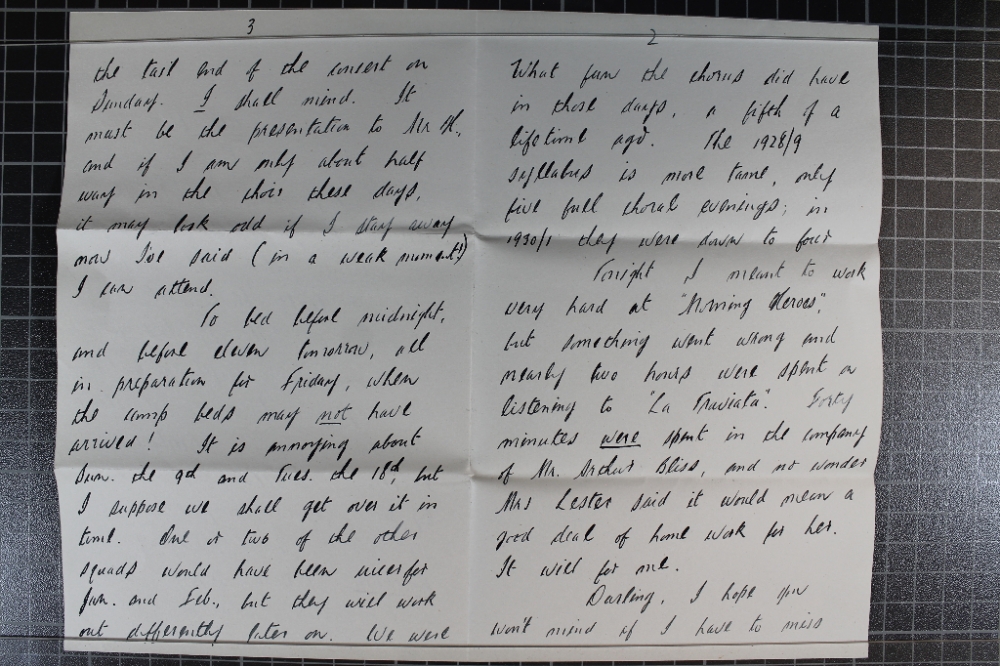 2
What fun the chorus did have
in those days, a fifth of a
lifetime ago. The 1928/9
syllabus is more tame, only
five full choral evenings; in
1930/1 they were down to four
Tonight I meant to work
very hard at "Morning Heroes",
but something went wrong and
nearly two hours were spent on
listening to "La Traviata". Forty
minutes were spent in the company
of Mr. Arthur Bliss, and no wonder
Mrs Lester said it would mean a
good deal of home work for her.
It will for me.
Darling, I hope you
won't mind if I have to miss
3
the tail end of the concert on
Sunday. I shall mind. It
must be the presentation to Mr H.,
and if I am only about half
way in the choir these days,
it may look odd if I stay away
now I've said (in a weak moment!)
I can attend.
To bed before midnight,
and before eleven tomorrow, all
in preparation for Friday, when
the camp beds may not have
arrived! It is annoying about
Sun. the 9th and Tues. the 18th, but
I suppose we shall get over it in
time. One or two of the other
squads would have been nicer for
Jan. and Feb., but they will work
out differently later on. We were